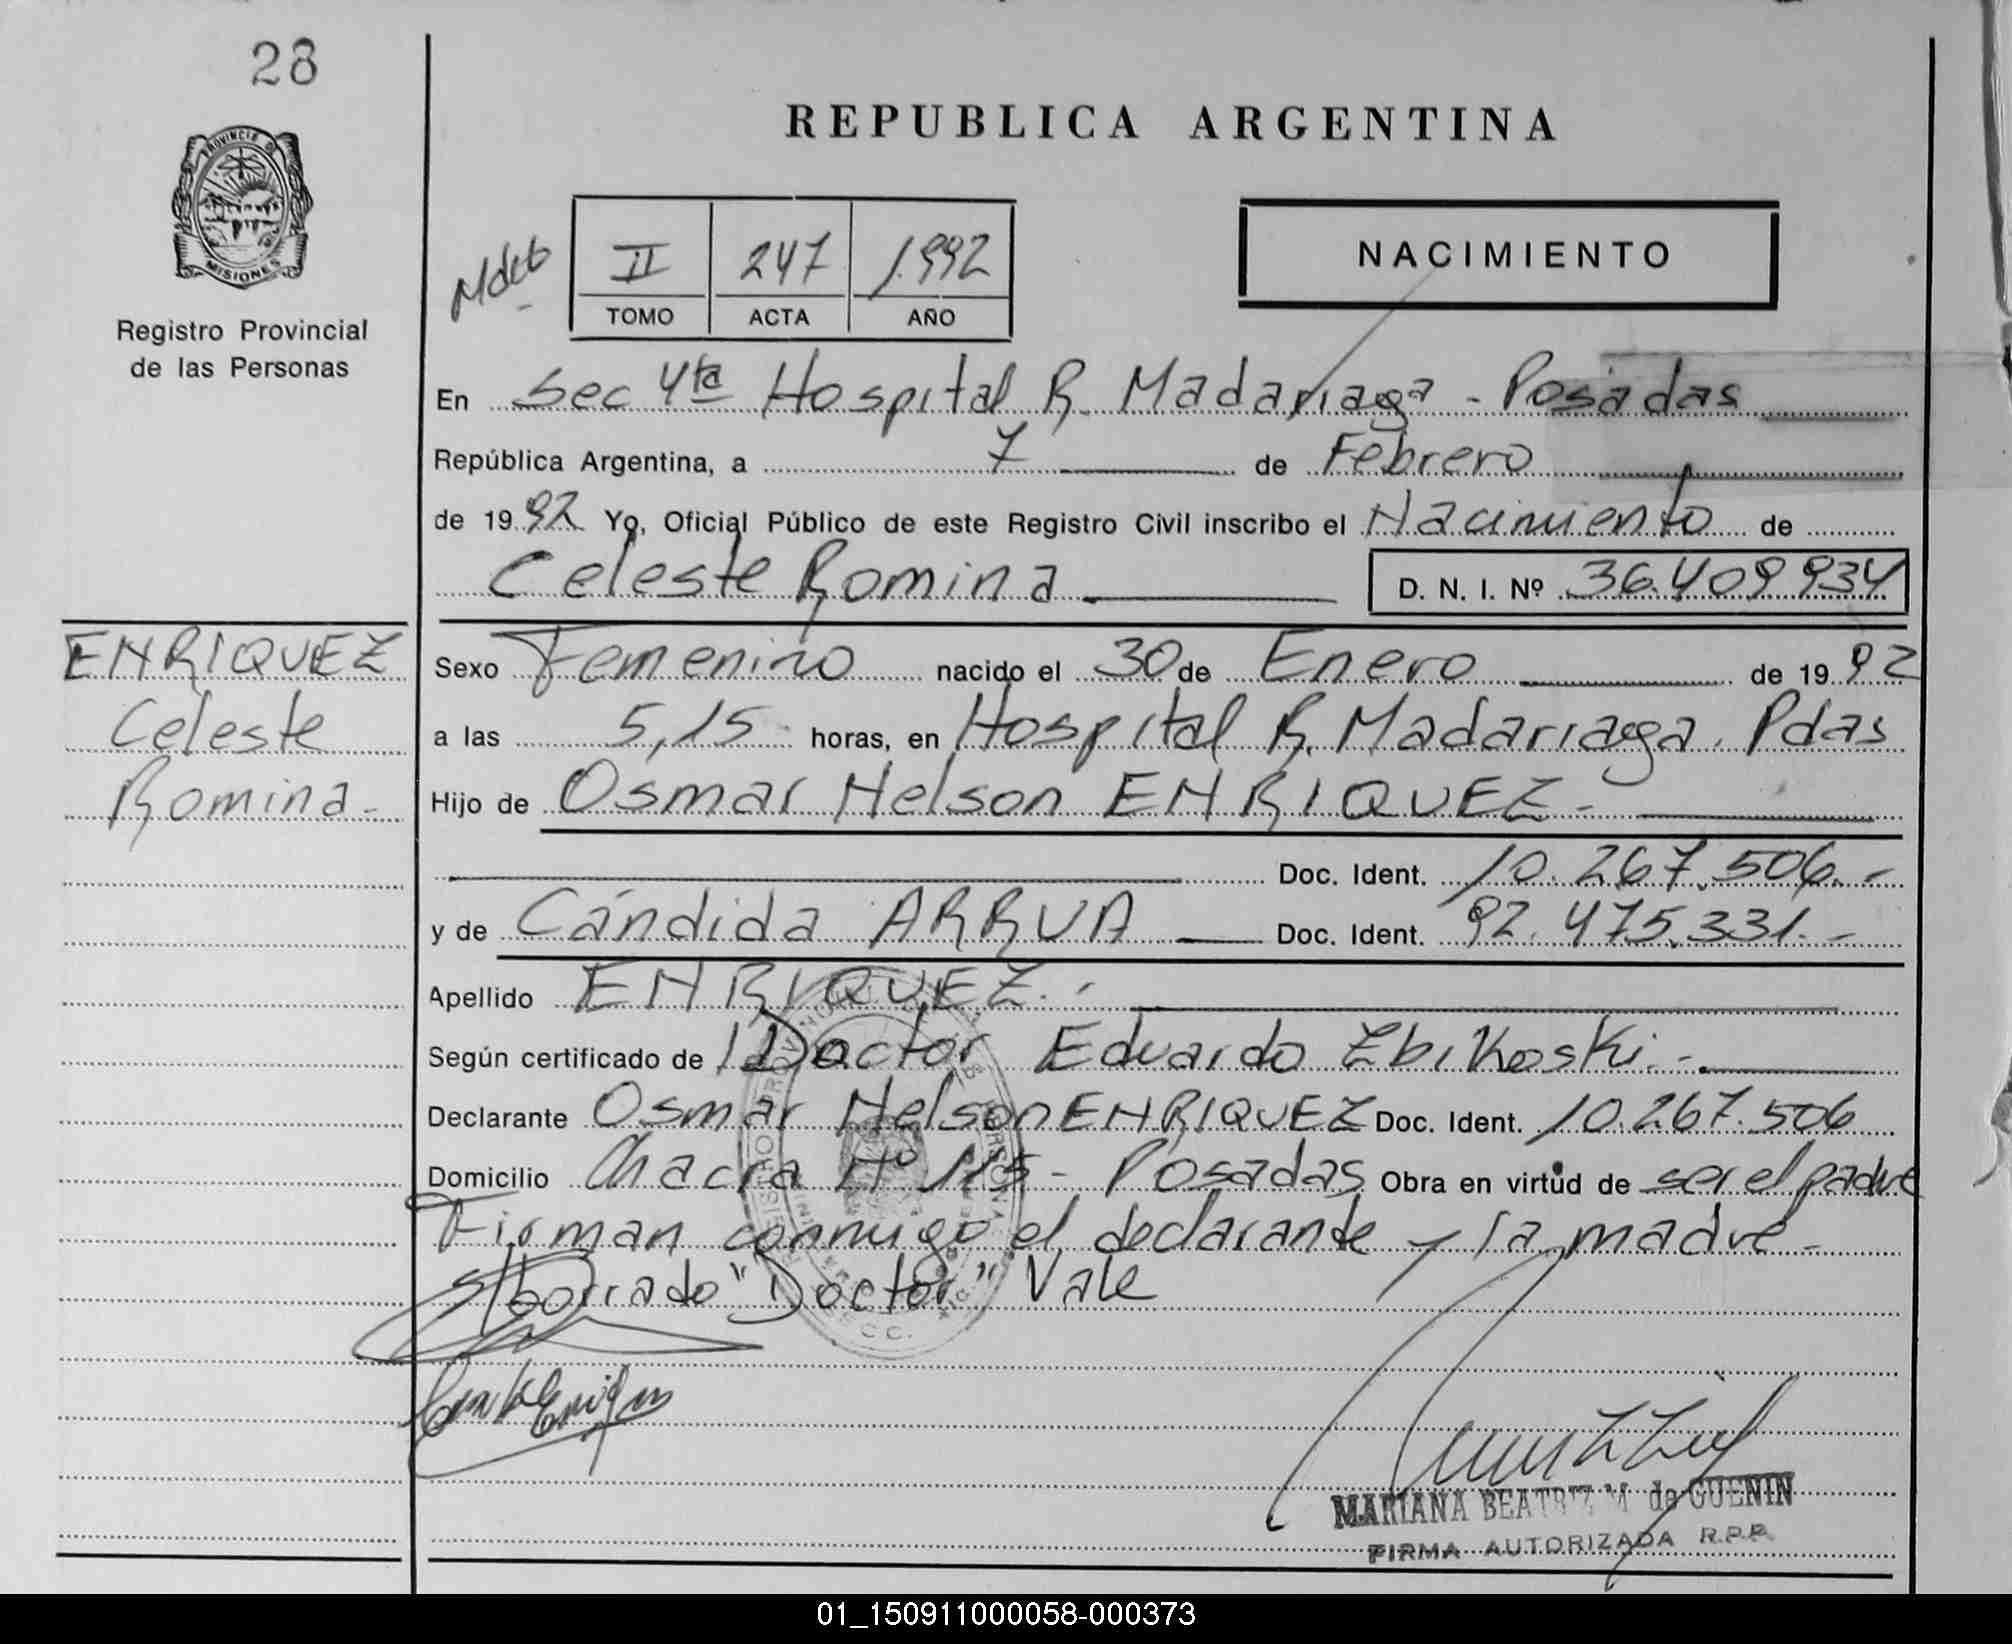 28
PROVINCIA DE
MISIONES
Registro Provincial
de las Personas
REPUBLICA ARGENTINA
II 247 1.992
TOMO ACTA AÑO
NACIMIENTO
En Sec 4ta Hospital R. Madariaga - Posadas
República Argentina, a 7 de Febrero
de 1992 Yo, Oficial Público de este Registro Civil inscribo el Nacimiento de
Celeste Romina D. N. I. Nº 36.409934
ENRIQUEZ
Celeste
Romina.-
Sexo Femenino nacido el 30 de Enero de 1992
a las 5,15 horas, en Hospital R. Madariaga. Pdas
Hijo de Osmar Nelson ENRIQUEZ.-
Doc. Ident. 10.267.506.-
y de Cándida ARRUA Doc. Ident. 92.475.331.-
Apellido ENRIQUEZ.-
Según certificado de Doctor Eduardo Zbikoski.-
Declarante Osmar Nelson ENRIQUEZ Doc. Ident. 10.267.506
Domicilio Chacra Nº 115 - Posadas Obra en virtud de ser el padre
Firman conmigo el declarante y la madre.-
S/borrado "Doctor" Vale
MARIANA BEATRIZ M. de GUENIN
FIRMA AUTORIZADA R.P.P.
01_150911000058-000373